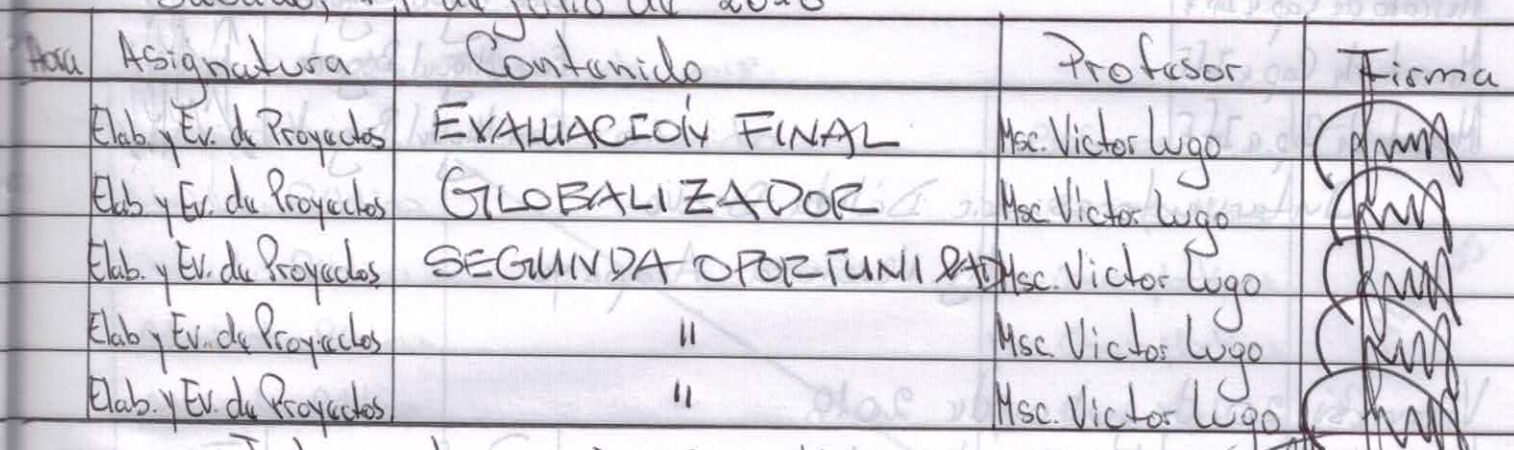 de julio de 2010
Hora Asignatura Contenido Profesor Firma
Elab. y Ev. de Proyectos EVALUACIÓN FINAL Msc. Victor Lugo
Elab. y Ev. de Proyectos GLOBALIZADOR Msc. Victor Lugo
Elab. y Ev. de Proyectos SEGUNDA OPORTUNIDAD Msc. Victor Lugo
Elab. y Ev. de Proyectos " Msc. Victor Lugo
Elab. y Ev. de Proyectos " Msc. Victor Lugo